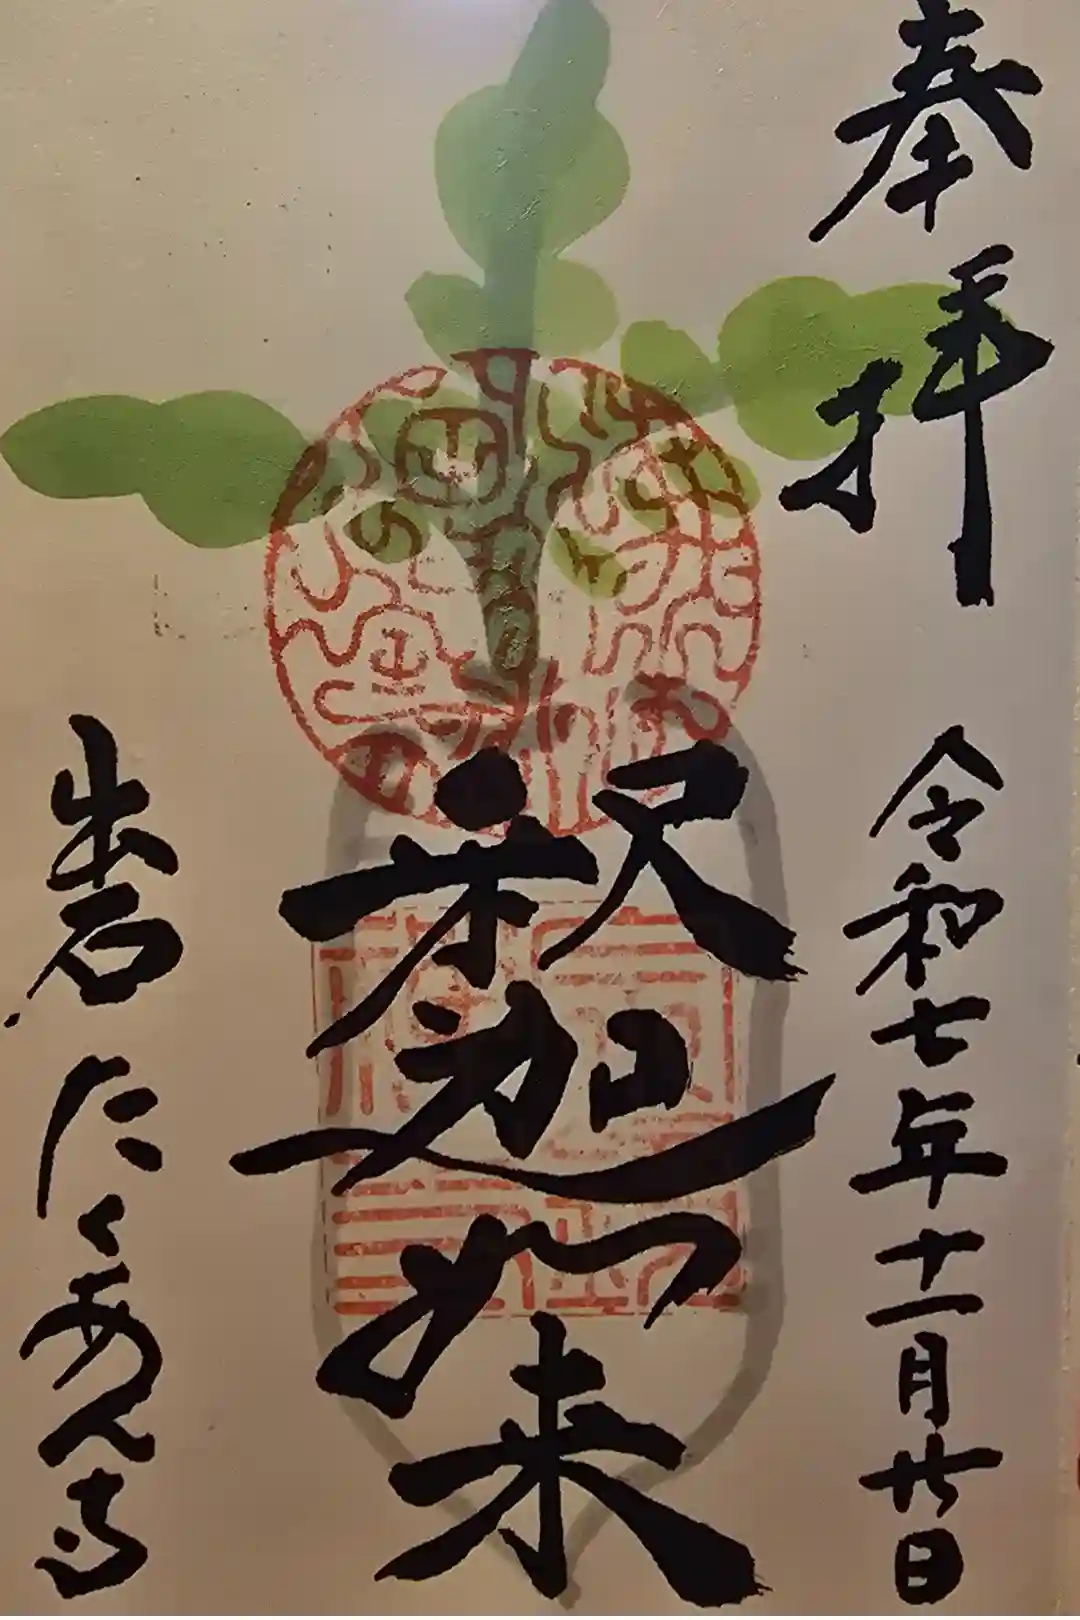 奉拝
令和七年十一月廿日
釈迦如来
出石たくあん寺